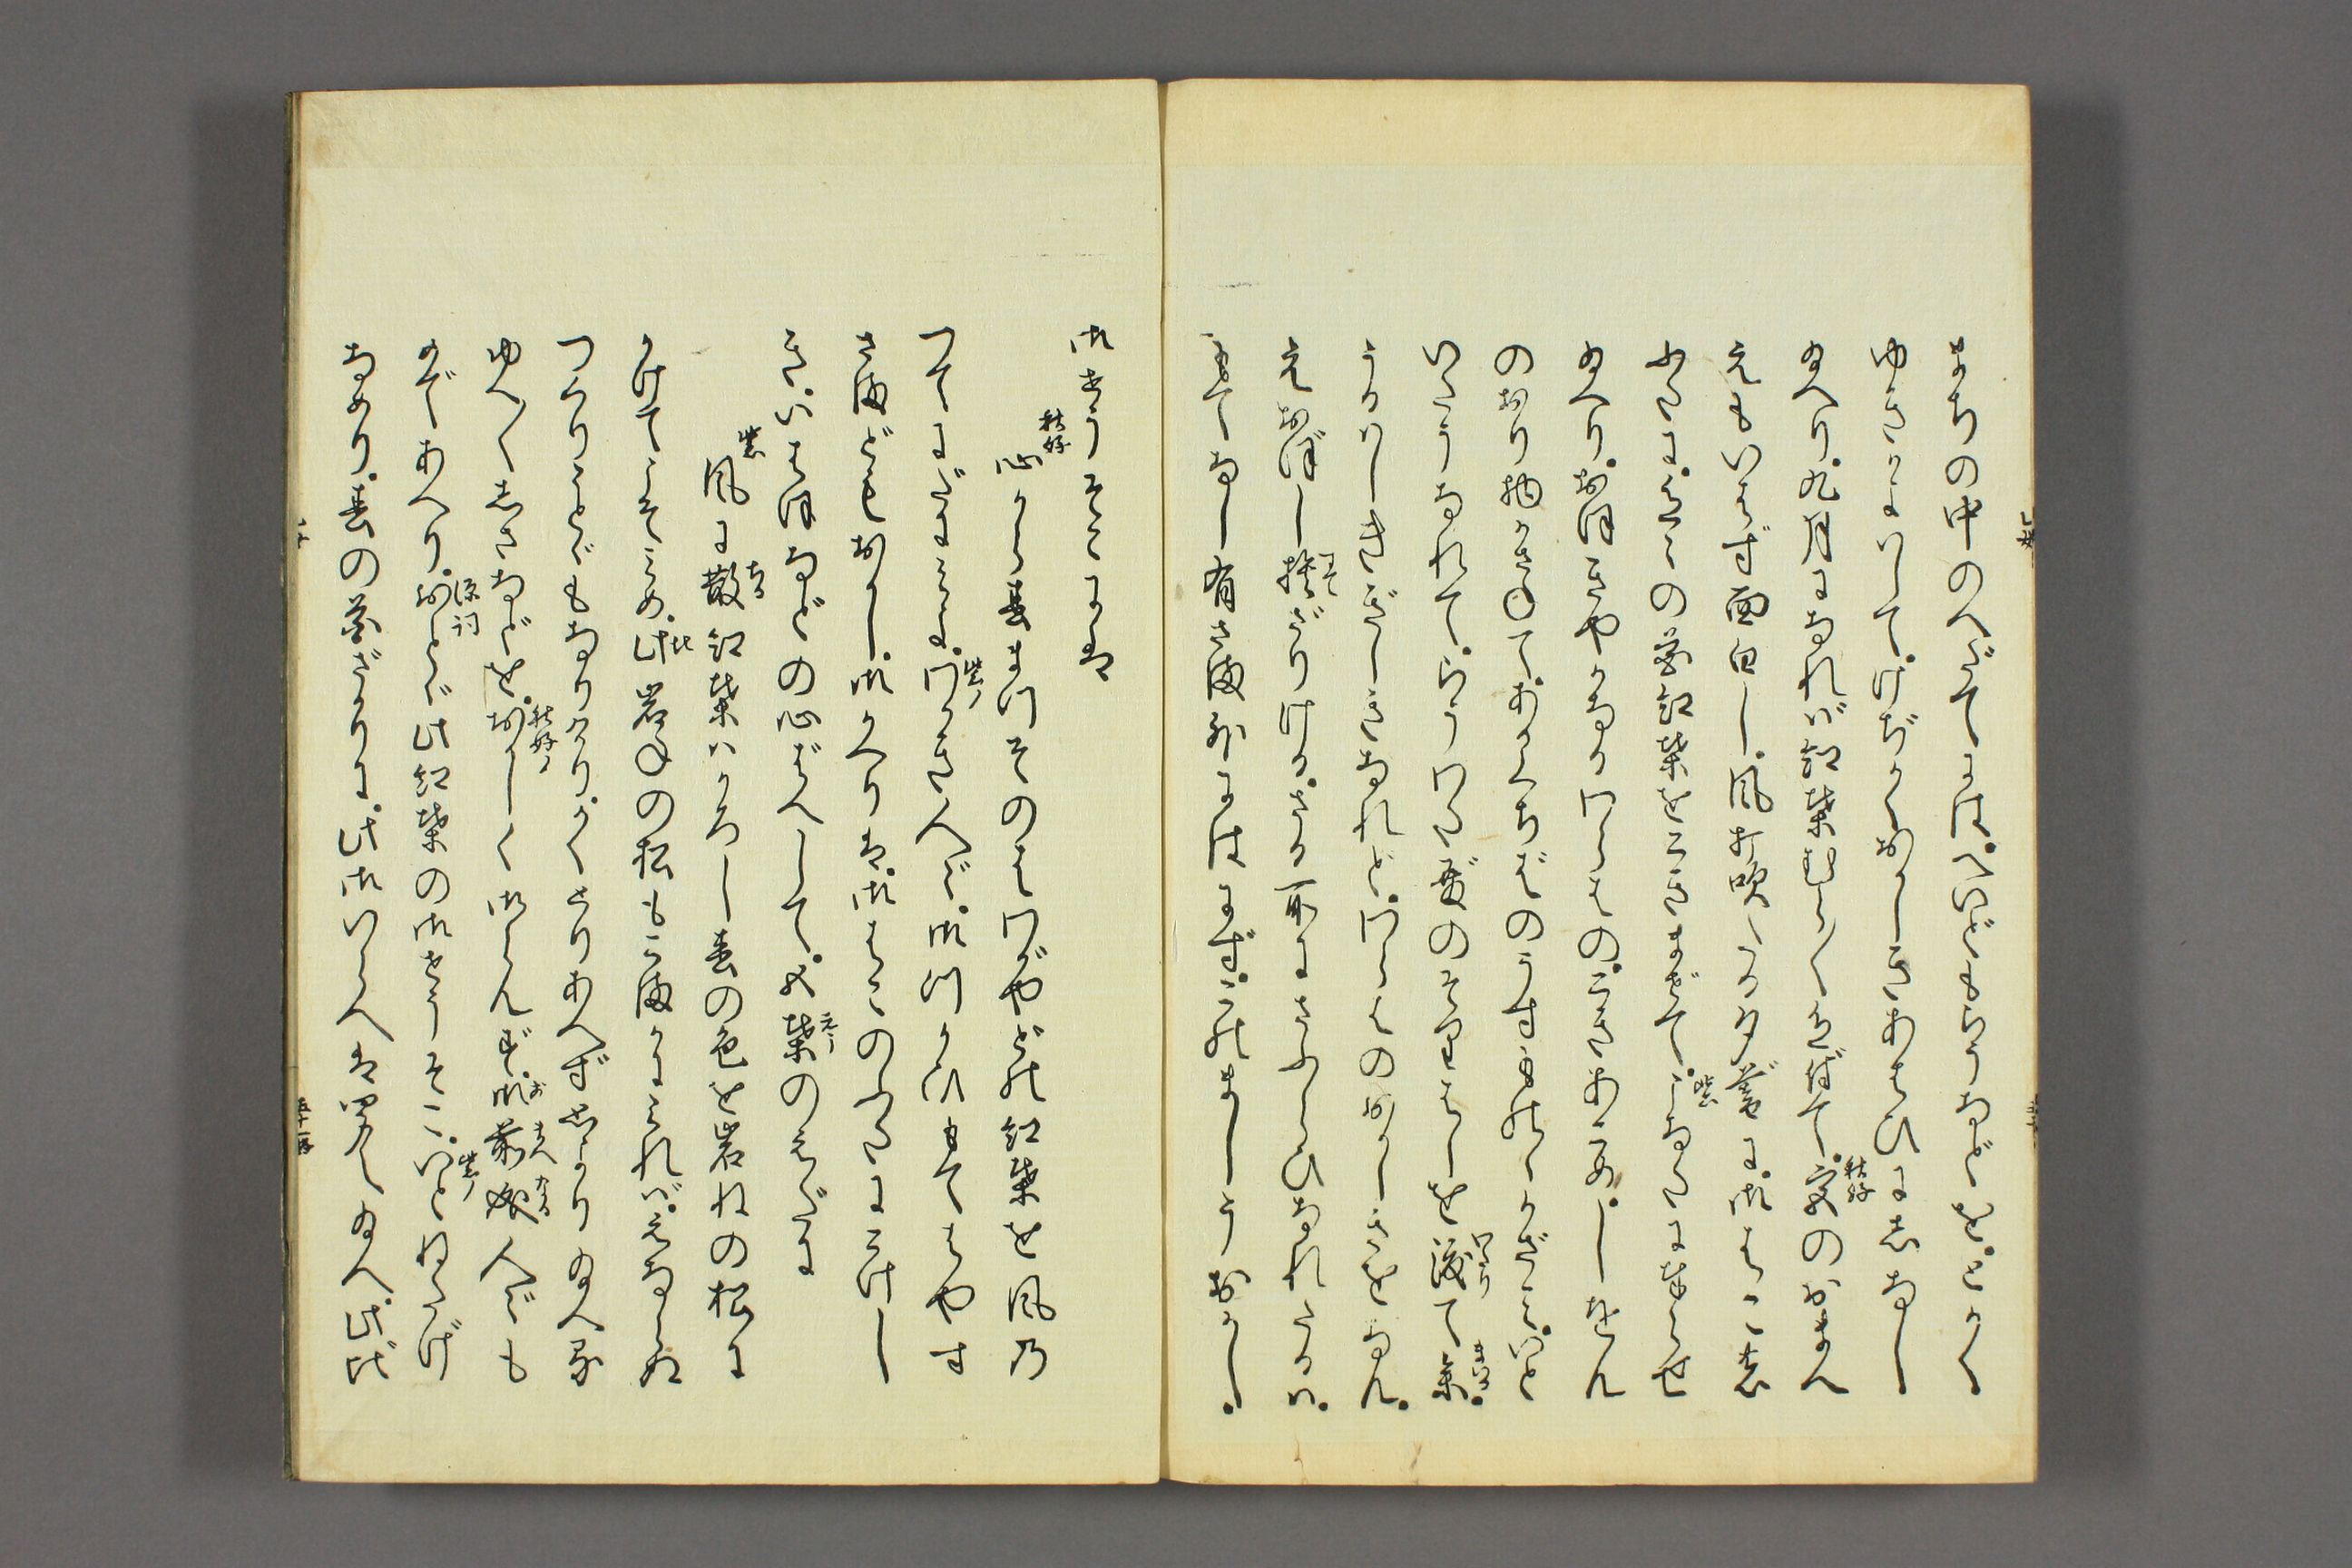 まちの中のへだてにはへいどもらうなどを。とかく
ゆきかよはして。けぢかくおかしきあはひにしなし
給へり。九月になれば紅葉むら〱色づきて。宮のおまへ
秋好
えもいはず面白し。風打吹たる夕暮に。御はこの
ふたに。色〱の花紅葉をこきまぜて。こなたに奉らせ
紫
給へり。おほきやかなるわらはの。こきあこめ。しをん
のおり物かさねて。あかくちばのうす物のかざみ。いと
いたうなれて。らうわた殿のそりはしを渡て参。
わたり
まいる
うるはしきぎしきなれど。わらはのおかしきをなん。
えおぼし捨ざりける。さる所にさふらひなれたれば。
すて
もてなし有さま外にはにず。このましうおかし。
御せうそこには
秋好
心から春まつそのはわがやどの紅葉を風の
つてにだにみよ。わかき人〲。御つかひもてはやす
紫ノ
さまどもおかし。御かへりは。此御はこのふたにこけしき。いはほなどの心ばへして。五葉のえだに
えう
紫
風に散紅葉はかろし春の色を岩ねの松に
ちる
かけてこそみめ。此岩ねの松もこまかにみれば。えならぬ
此
つくりごとゞもなりけり。かくとりあへず思より給へる
ゆへ〱しさなどを。おかしく御らんず。御前なる人〲も
秋好ノ
めであへり。おとゞ此紅葉の御せうそこ。いとねたげ
源詞
紫ノ
なめり。春の花ざかりに。此御いらへは聞え給へ。此比